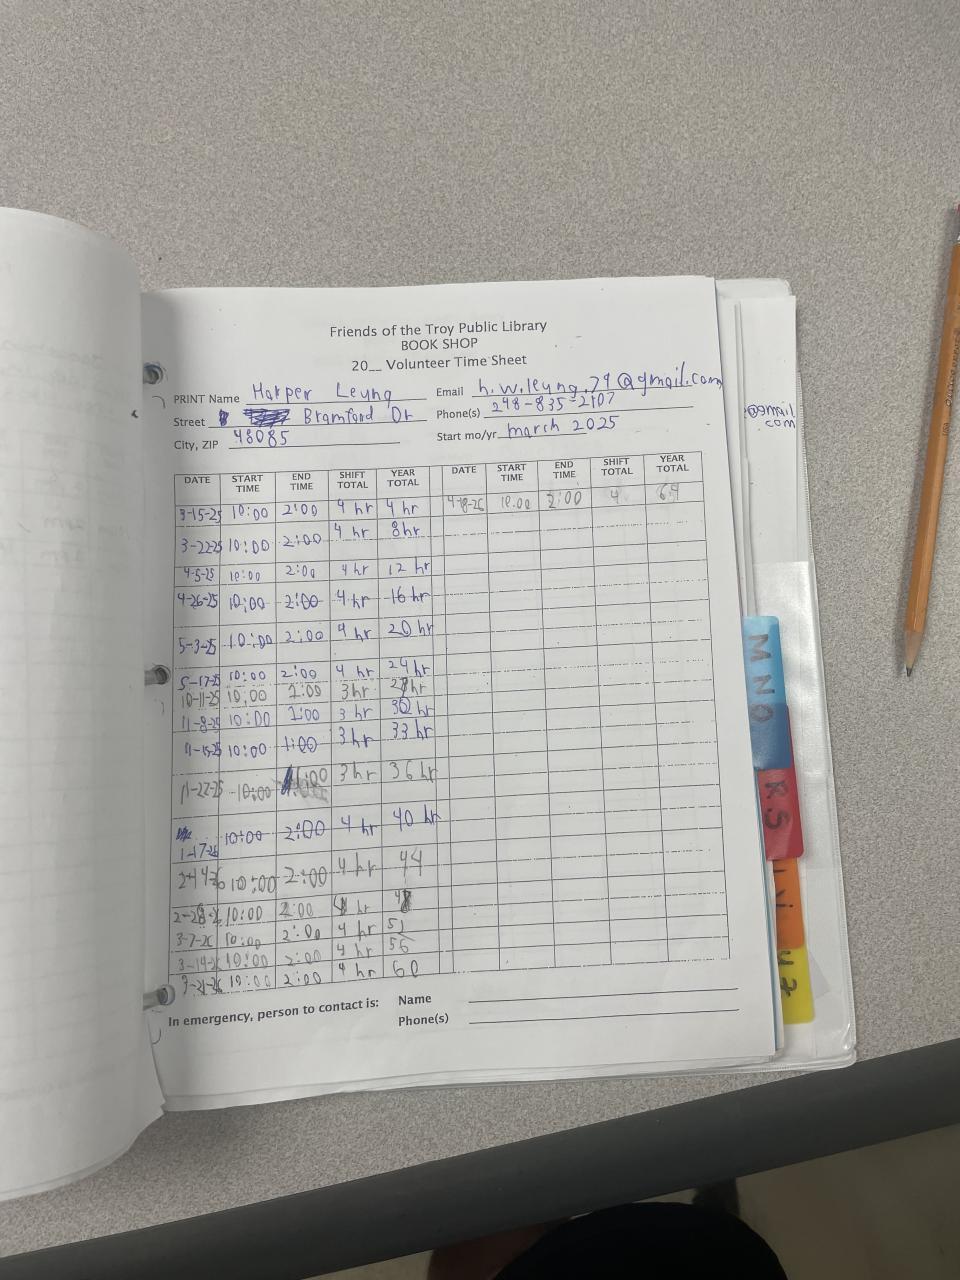 Friends of the Troy Public Library
BOOK SHOP
20__ Volunteer Time Sheet
PRINT Name Harper Leung Email h.w.leung.79@gmail.com
Street Bramford Dr Phone(s) 248-835-2107
City, ZIP 48085 Start mo/yr march 2025
@gmail.
com
DATE START TIME END TIME SHIFT TOTAL YEAR TOTAL DATE START TIME END TIME SHIFT TOTAL YEAR TOTAL
3-15-25 10:00 2:00 4 hr 4 hr 4-18-26 10:00 2:00 4 64
3-22-25 10:00 2:00 4 hr 8hr
4-5-25 10:00 2:00 4 hr 12 hr
4-26-25 10:00 2:00 4 hr 16 hr
5-3-25 10:00 2:00 4 hr 20 hr
5-17-25 10:00 2:00 4 hr 24 hr
10-11-25 10:00 1:00 3 hr 27hr
11-8-25 10:00 1:00 3 hr 30 hr
11-15-25 10:00 1:00 3 hr 33 hr
11-22-25 10:00 1:00 3 hr 36 hr
1-17-26 10:00 2:00 4 hr 40 hr
2-14-26 10:00 2:00 4 hr 44
2-28-26 10:00 2:00 4 hr 48
3-7-26 10:00 2:00 4 hr
3-14-26 10:00 2:00 4 hr 56
3-21-26 10:00 2:00 4 hr 60
In emergency, person to contact is: Name
Phone(s)
M N O
R S
Y Z
USA